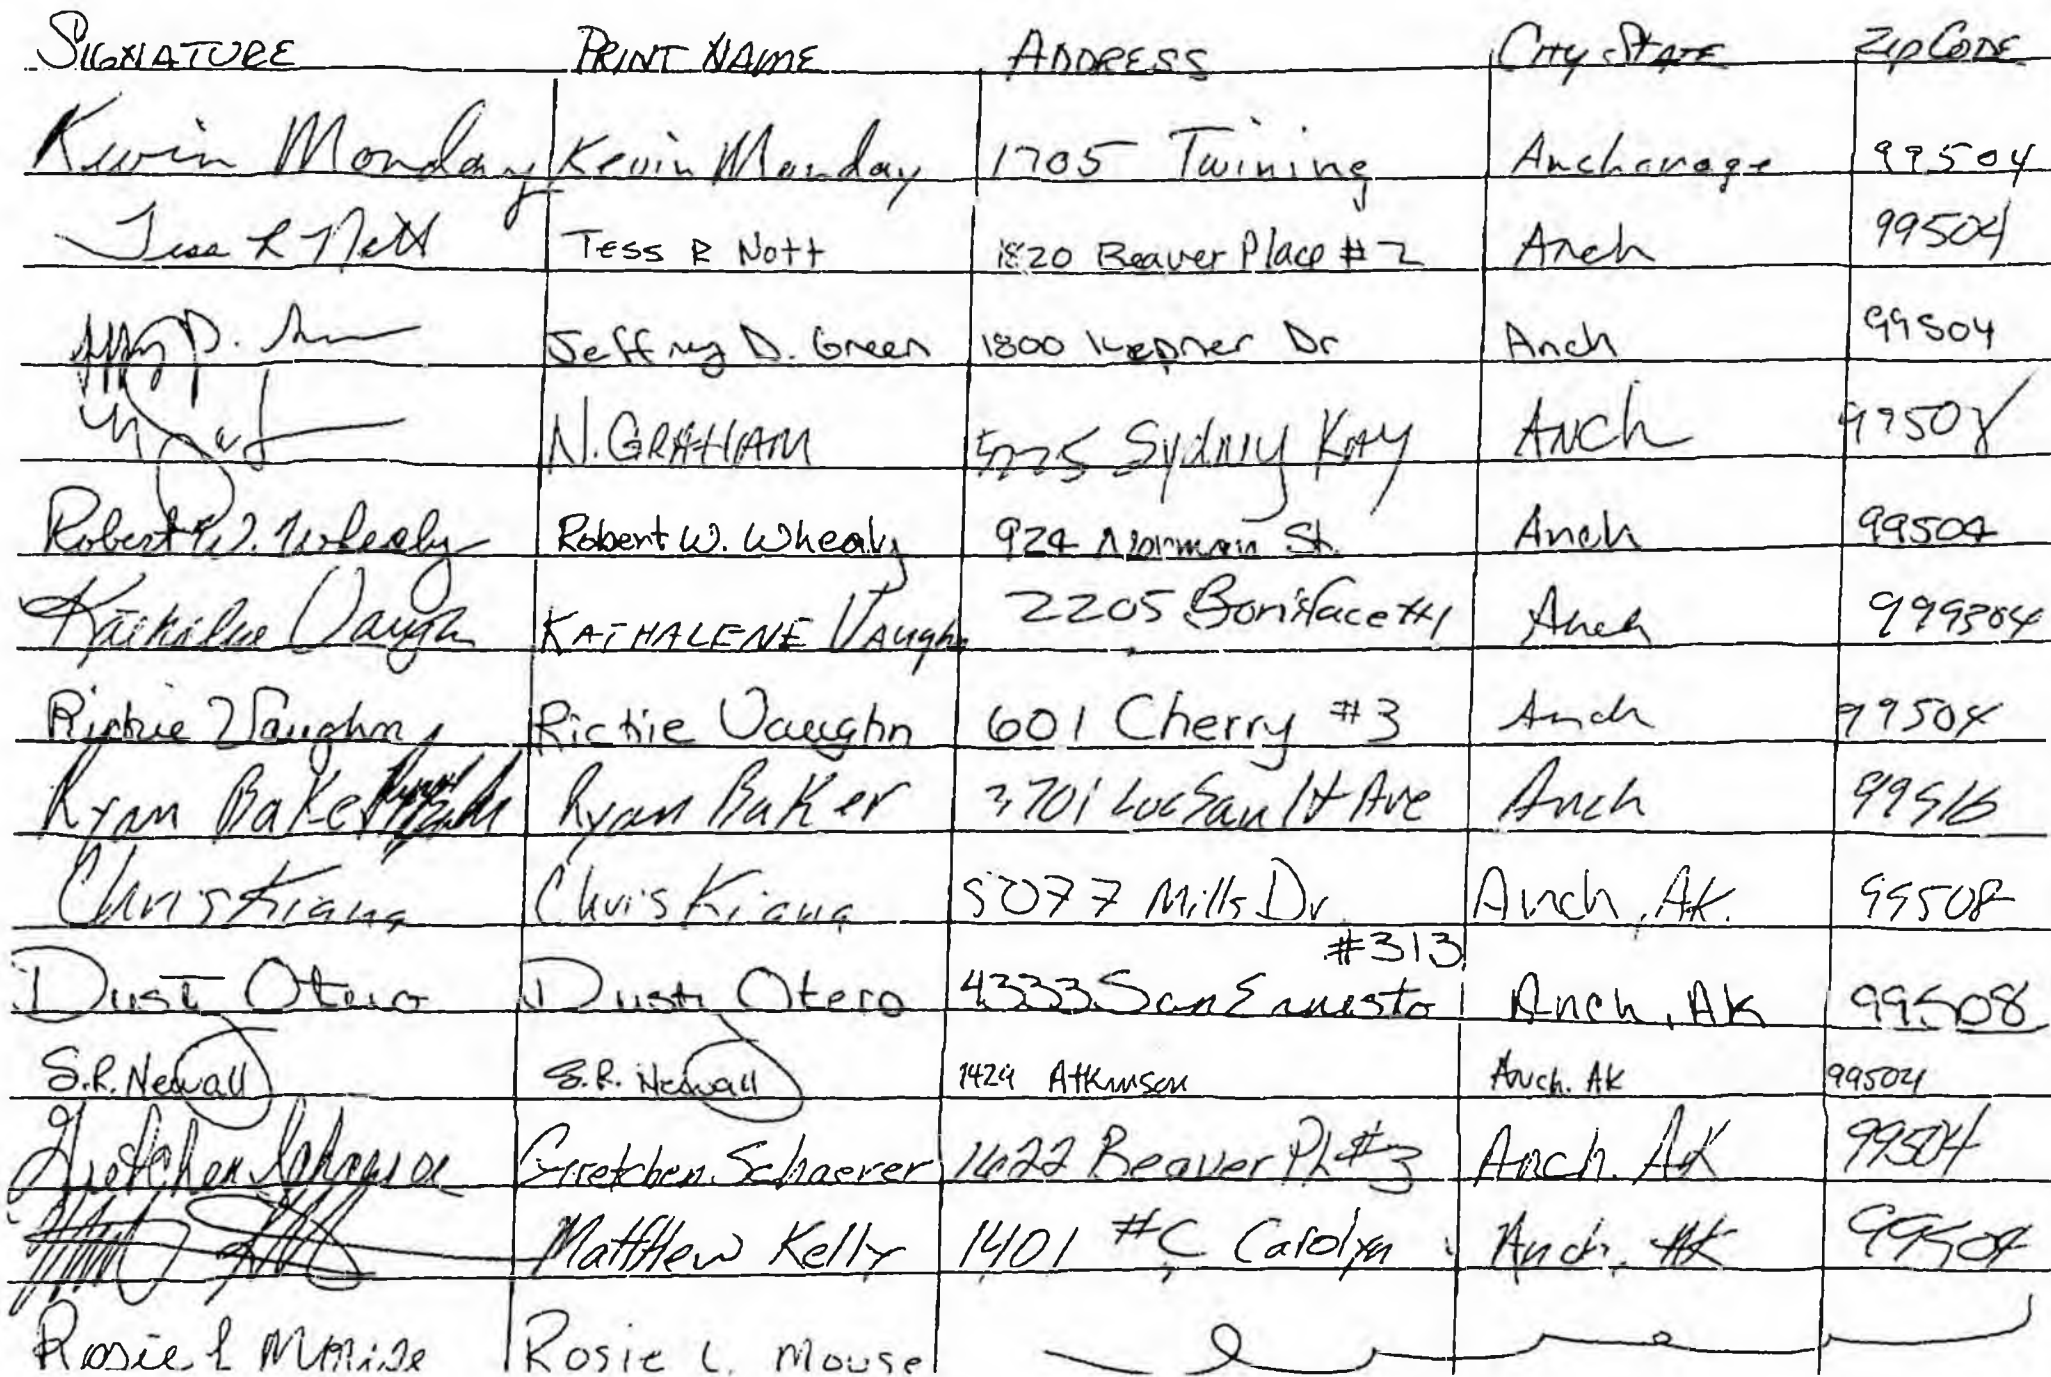 SIGNATURE PRINT NAME ADDRESS CITY STATE ZIP CODE
Kevin Monday Kevin Monday 1705 Twining Anchorage 99504
Tess R Nott Tess R Nott 1820 Beaver Place #2 Anch 99504
Jeffrey D. Green 1800 Kepner Dr Anch 99504
N. GRAHAM 5225 Sydney KAY ANCH 99508
Robert W. Whealy Robert W. Whealy 924 Norman St. Anch 99504
Kathalene Vaughn KATHALENE VAughn 2205 Boniface #1 Anch 999504
Richie Vaughn Richie Vaughn 601 Cherry #3 Anch 99504
Ryan Baker Ryan Baker 3701 Ave Anch 99516
Chris Kiana Chris Kiana 5077 Mills Dr. Anch, AK. 99508
#313
Dusti Otero Dusti Otero 4333 San Ernesto Anch, AK 99508
S.R. Newall S.R. Newall 1429 Atkinson Anch. AK 99504
Gretchen Schaerer Gretchen Schaerer 1622 Beaver Pl #3 Anch. AK 99504
Matthew Kelly 1401 #C Carolyn Anch, AK 99504
Rosie L Mouse Rosie L. Mouse